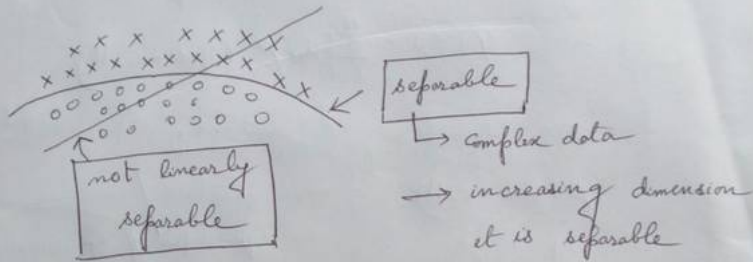 separable
↳ complex data
→ increasing dimension
it is separable
not linearly
separable